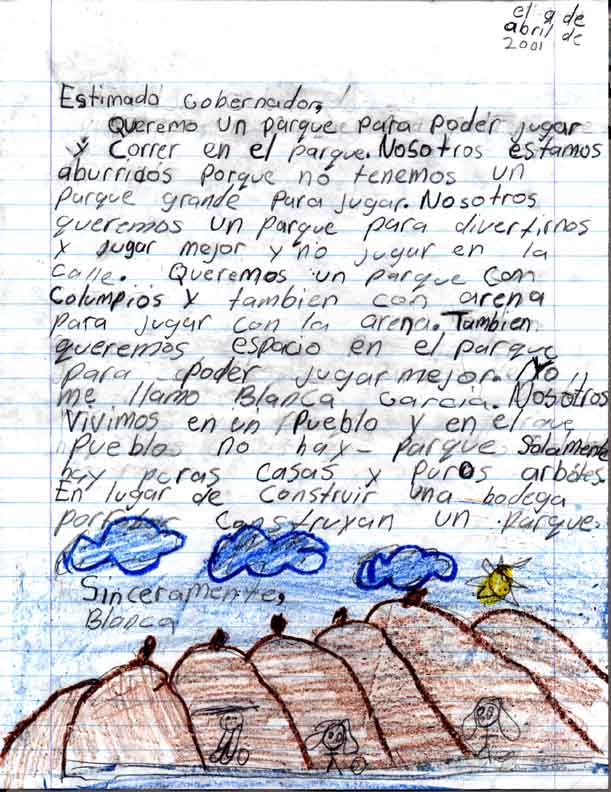 el 9 de
abril de
2001
Estimado Gobernador,
Queremo un parque para poder jugar
y correr en el parque. Nosotros estamos
aburridos porque no tenemos un
parque grande para jugar. Nosotros
queremos un parque para divertirnos
y jugar mejor y no jugar en la
calle. Queremos un parque con
columpios y tambien con arena
para jugar con la arena. Tambien
queremos espacio en el parque
para poder jugar mejor. Yo
me llamo Blanca Garcia. Nosotros
Vivimos en un Pueblo y en el
Pueblo no hay parque solamente
hay puras casas y puros arboles.
En lugar de construir una bodega
construyan un parque.
Sinceramente,
Blanca